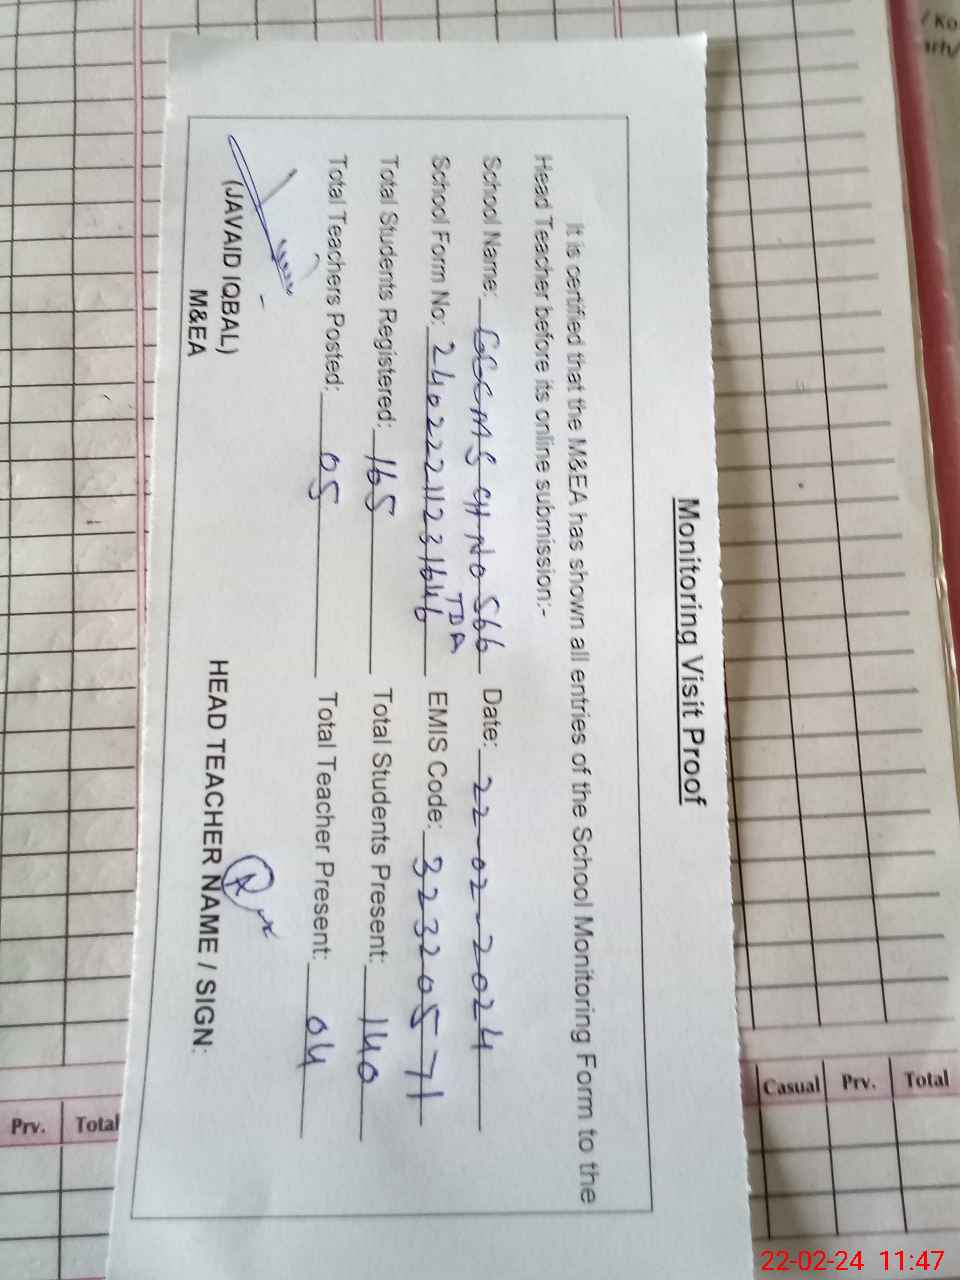 Monitoring Visit Proof
It is certified that the M&EA has shown all entries of the School Monitoring Form to the
Head Teacher before its online submission:-
School Name: GGCMS CH NO 566 TDA Date: 22-02-2024
School Form No: 24022211231646 EMIS Code: 32320571
Total Students Registered: 165 Total Students Present: 140
Total Teachers Posted: 05 Total Teacher Present: 04
(JAVAID IQBAL) HEAD TEACHER NAME / SIGN:
M&EA
Casual Prv. Total
Prv. Total
22-02-24 11:47